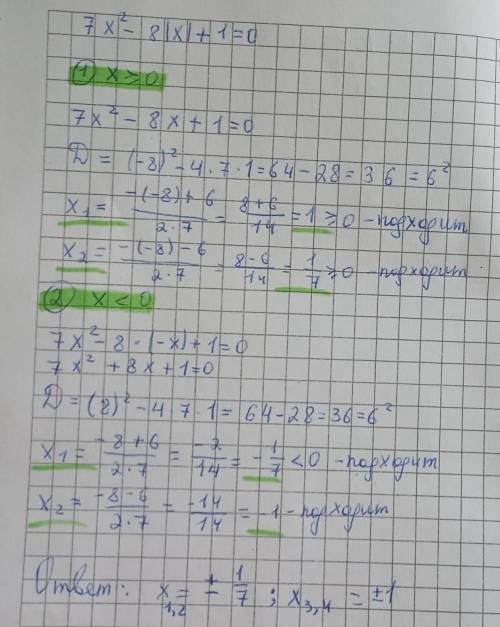 7x² - 8|x| + 1 = 0
① x ≥ 0
7x² - 8x + 1 = 0
D = (-8)² - 4 · 7 · 1 = 64 - 28 = 36 = 6²
x₁ = (-(-8) + 6)/(2·7) = (8+6)/14 = 1 ≥ 0 - подходит
x₂ = (-(-8) - 6)/(2·7) = (8-6)/14 = 1/7 ≥ 0 - подходит
② x < 0
7x² - 8 · (-x) + 1 = 0
7x² + 8x + 1 = 0
D = (8)² - 4 · 7 · 1 = 64 - 28 = 36 = 6²
x₁ = (-8 + 6)/(2·7) = -2/14 = -1/7 < 0 - подходит
x₂ = (-8 - 6)/(2·7) = -14/14 = -1 - подходит
Ответ: x₁,₂ = ± 1/7 ; x₃,₄ = ±1